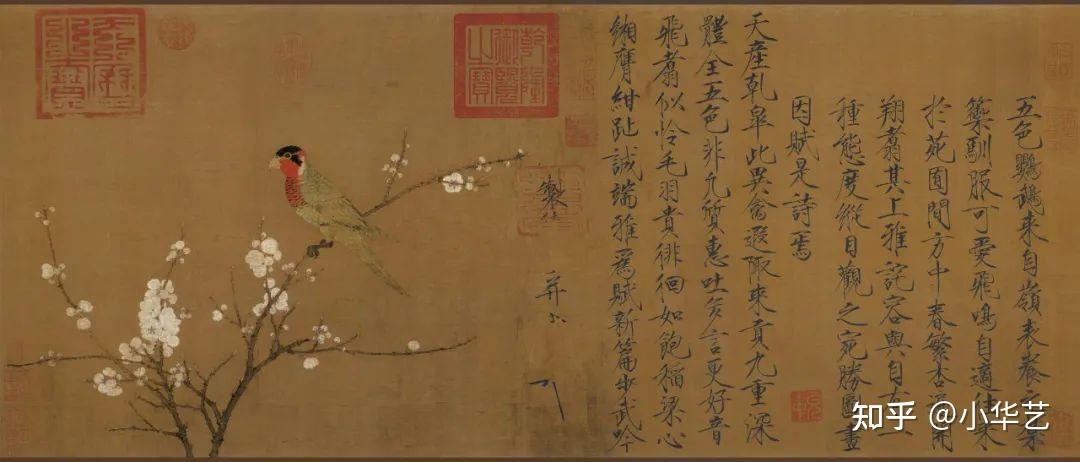 五色鸚鵡來自嶺表養之禁
籞馴服可愛飛鳴自適往來
於苑囿間方中春繁杏遍開
翔翥其上雅詫容與自有一
種態度縱目觀之宛勝圖畫
因賦是詩焉
天產乾皋此異禽遐陬來貢九重深
體全五色非凡質惠吐多言更好音
飛翥似憐毛羽貴徘徊如飽稻粱心
緗膺紺趾誠端雅為賦新篇步武吟
乾隆御覽之寶
天曆之寶
知乎 @小华艺